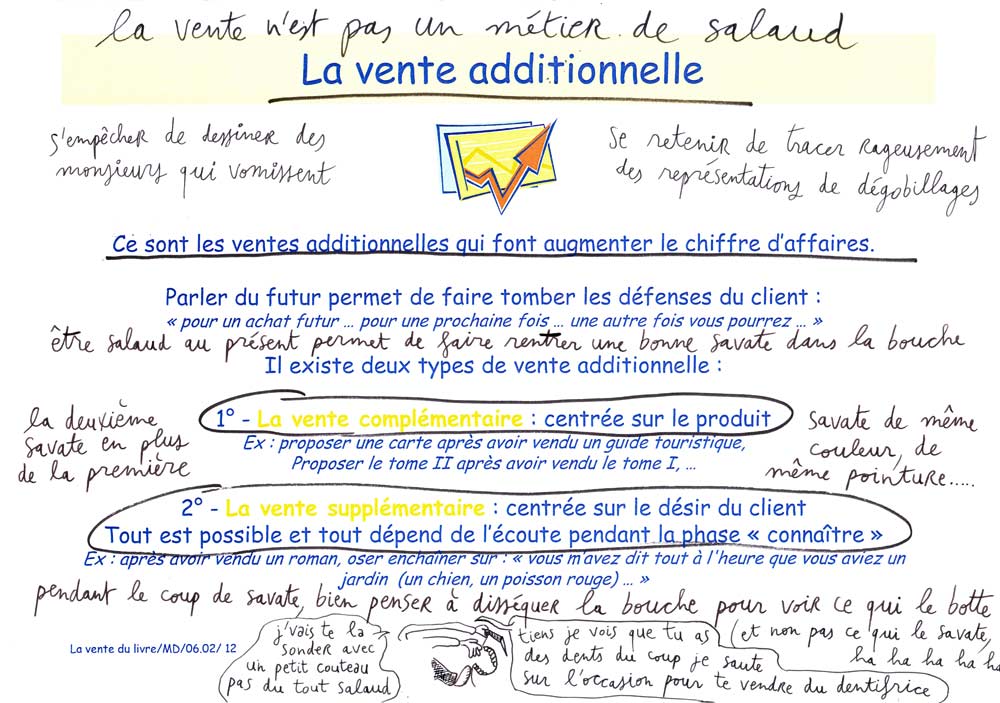 la vente n'est pas un métier de salaud
La vente additionnelle
s'empêcher de dessiner des
monsieurs qui vomissent
se retenir de tracer rageusement
des représentations de dégobillages
Ce sont les ventes additionnelles qui font augmenter le chiffre d'affaires.
Parler du futur permet de faire tomber les défenses du client :
« pour un achat futur ... pour une prochaine fois ... une autre fois vous pourrez ... »
être salaud au présent permet de faire rentrer une bonne savate dans la bouche
Il existe deux types de vente additionnelle :
la deuxième
savate en plus
de la première
1° - La vente complémentaire : centrée sur le produit
Ex : proposer une carte après avoir vendu un guide touristique,
Proposer le tome II après avoir vendu le tome I, ...
savate de même
couleur, de
même pointure.....
2° - La vente supplémentaire : centrée sur le désir du client
Tout est possible et tout dépend de l'écoute pendant la phase « connaître »
Ex : après avoir vendu un roman, oser enchaîner sur : « vous m'avez dit tout à l'heure que vous aviez un
jardin (un chien, un poisson rouge) ... »
pendant le coup de savate, bien penser à disséquer la bouche pour voir ce qui le botte
(et non pas ce qui le savate,
ha ha ha ha ha
La vente du livre/MD/06.02/ 12
j'vais te la
sonder avec
un petit couteau
pas du tout salaud
tiens je vois que tu as
des dents du coup je saute
sur l'occasion pour te vendre du dentifrice